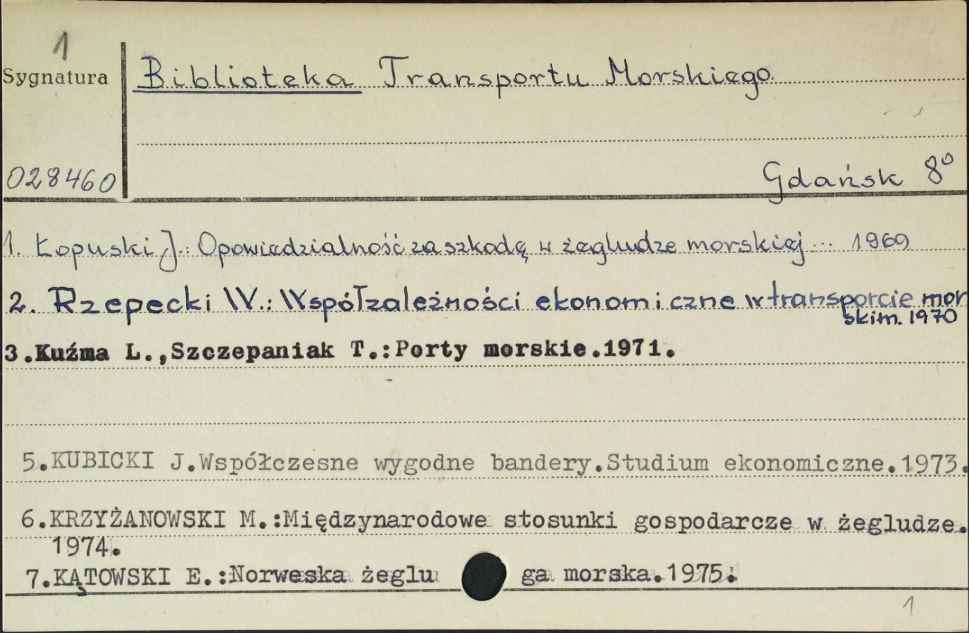 1
Sygnatura
Biblioteka Transportu Morskiego
028460
Gdańsk 8º
1. Łopuski J.: Opowiedzialność za szkodę w żegludze morskiej... 1969
2. Rzepecki W.: Współzależności ekonomiczne w transporcie mor
skim. 1970
3.Kuźma L.,Szczepaniak T.:Porty morskie.1971.
5.KUBICKI J.Współczesne wygodne bandery.Studium ekonomiczne.1973.
6.KRZYŻANOWSKI M.:Międzynarodowe stosunki gospodarcze w żegludze.
1974.
7.KĄTOWSKI E.:Norweska żeglu ga morska.1975.
1